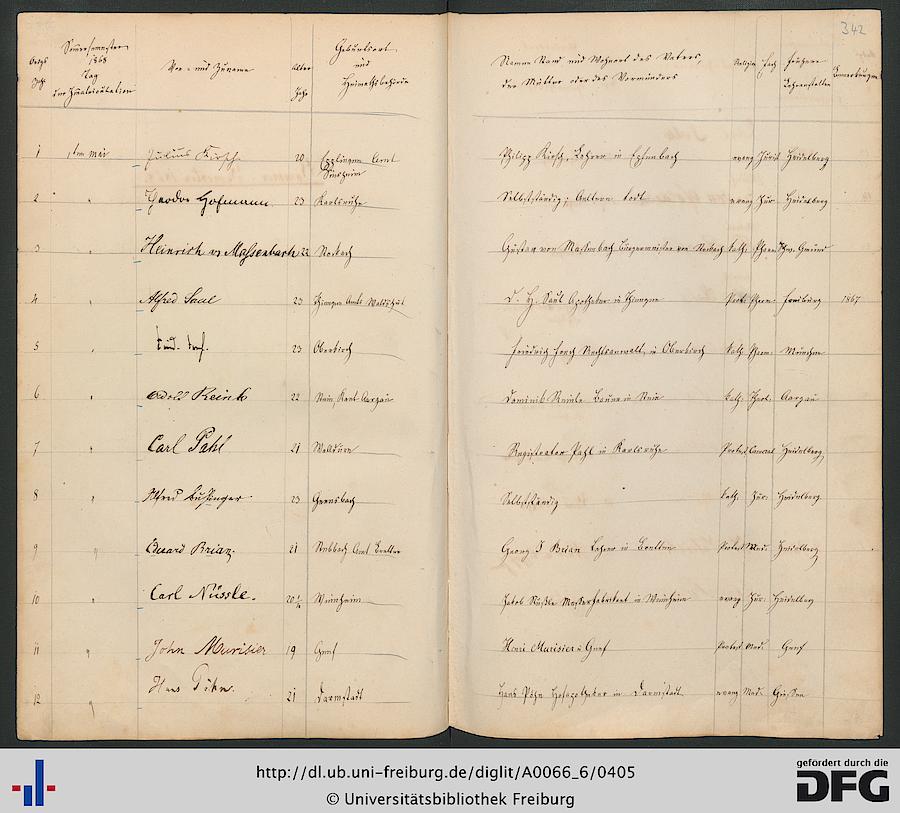 342
Sommersemester
1868
Tag
der Immatriculation
Vor- und Zuname
Alter
Jahr
Geburtsort
und
Heimathsbehörde
Namen Stand und Wohnort des Vaters,
der Mutter oder des Vormünders
Religion Fach frühere
Lehranstalten
Bemerkungen
1 1ten Mai Julius Kirsch 20 Amt
Sinsheim
Philipp Kirsch, Lehrer in evang Jurist Heidelberg
2 " Theodor Hofmann 23 Karlsruhe Selbstständig; Aeltern todt evang Jur. Heidelberg
3 " Heinrich v. Massenbach 22 Gustav von Massenbach Bürgermeister von kath.
4 " Alfred Saul 23 Thiengen Amts Waldshut D. H. Saul Apotheker in Thiengen Prot. Pharm. Freiburg 1867
5 " 23 Oberkirch Friedrich Rechtsanwalt in Oberkirch kath. Pharm. München
6 " Adolf 22 Stein, Kant. Aargau Dominik Bauer in Stein kath. Theol. Aargau
7 " Carl Pahl 21 Walldürn Registrator Pahl in Karlsruhe Protest Cameral Heidelberg
8 " Alfred 23 Gernsbach Selbstständig kath. Jur. Heidelberg
9 " Eduard Brian. 21 Amt Georg J Brian Lehrer in Protest Med. Heidelberg
10 " Carl Nüssle. 20½ Weinheim Jakob Nüßle in Weinheim evang Jur. Heidelberg
11 " John Murisier 19 Genf Henri Murisier in Genf Protest Med. Genf
12 " Hans 21 Darmstadt Hans Hofapotheker in Darmstadt evang Med. Giessen
http://dl.ub.uni-freiburg.de/diglit/A0066_6/0405
© Universitätsbibliothek Freiburg
gefördert durch die
DFG